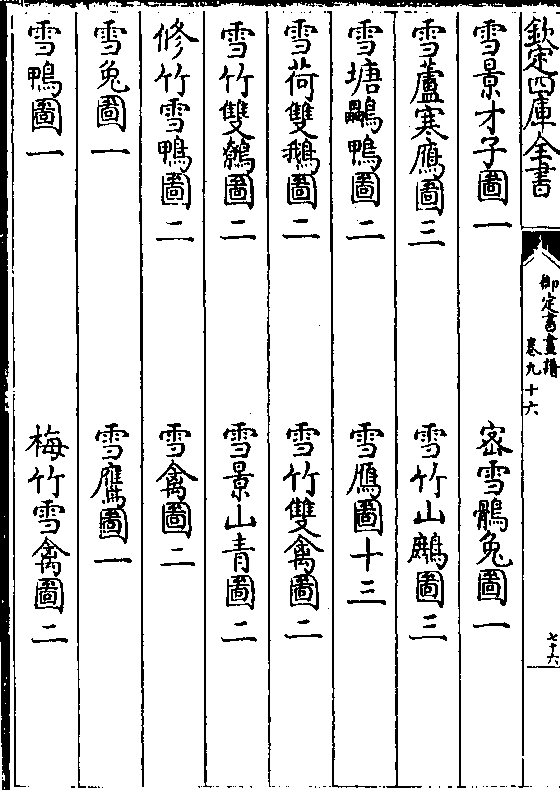 欽定四庫全書
御定書畫譜
卷九十六
七十六
雪景才子圖一　密雪鶻兔圖一
雪蘆寒鴈圖三　雪竹山鷓圖三
雪塘鴨圖二　雪鴈圖十三
雪荷雙鵝圖二　雪竹雙禽圖二
雪竹雙圖二　雪景山青圖二
修竹雪鴨圖二　雪禽圖二
雪兔圖一　雪鷹圖一
雪鴨圖一　梅竹雪禽圖二